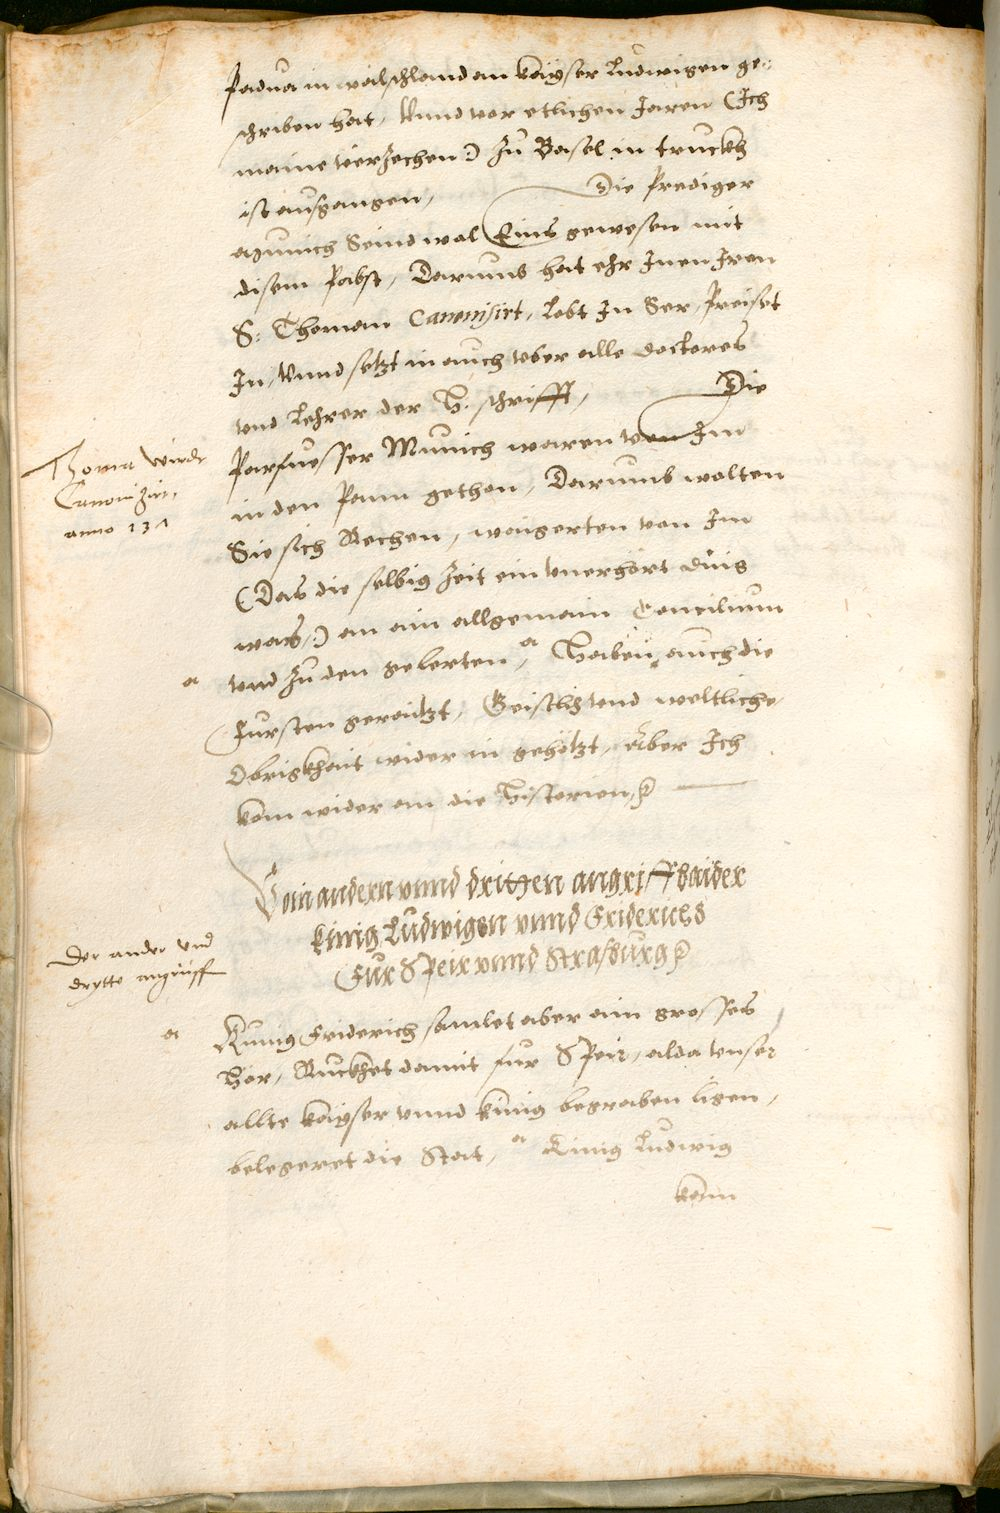 Padua in wälschland an kayser Ludwigen ge-
schriben hat, Vnnd vor etlichen Jaren (Ich
maine vierzechen:) zu Basel in truckh
ist ausgangen, Die Prediger
münich Seind wol Eins gewesen mit
disem Pabst, Darumb hat ehr Inen Iren
S: Thoman Canonisirt, Lobt In Ser, Preiset
In, Vnnd setzt in auch vber alle doctores
vnd Lehrer der H. schrifft, Die
Parfuesser Münich waren von Im
in den Pann gethan, Darumb wolten
Sie sich Rechen, waigerten von Im
(Das die selbig Zeit ein vnerhört ding
was:) an ain allgemain Concilium
vnd zu den gelerten, Haben auch die
Fursten geraitzt, Geistlich vnd weltliche
Obrigkhait wider in gehötzt, Aber Ich
kom wider an die Historien,
Thoma wirdt
Canonizirt,
anno 131
a
Vom andern vnnd dritten angriff baider
künig Ludwigen vnnd Friderichs
Fur Speir vnnd Strasburg
Der ander vnd
drytte angriff
a
Künig Friderich samlet aber ain grosses
Hör, Ruckhet damit fur Speir, alda vnser
allte kayser vnnd künig begraben ligen,
belegeret die Stat, Künig Ludwig
kam